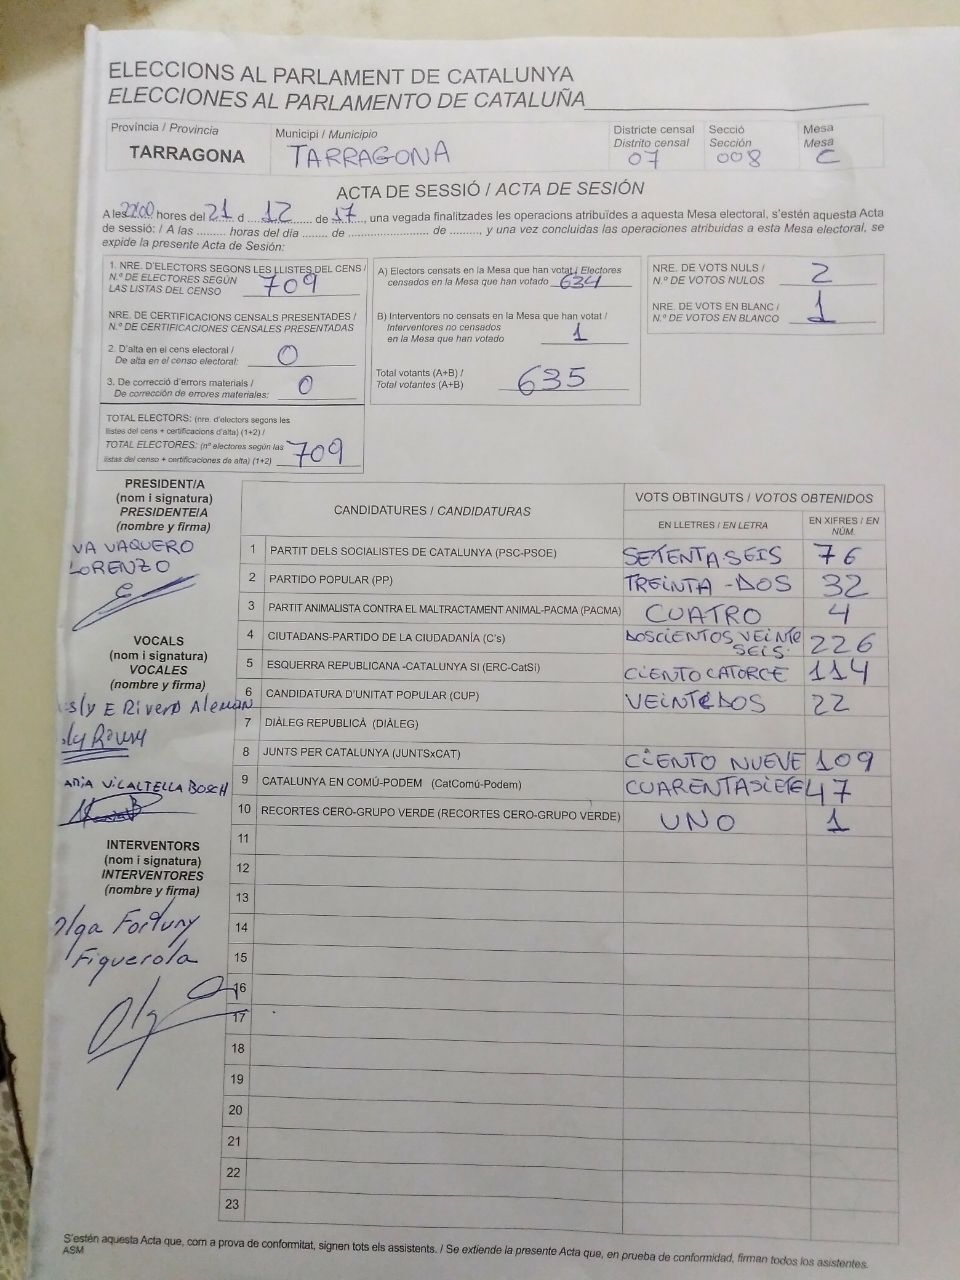 ELECCIONS AL PARLAMENT DE CATALUNYA
ELECCIONES AL PARLAMENTO DE CATALUÑA
Província / Provincia
TARRAGONA
Municipi / Municipio
TARRAGONA
Districte censal
Distrito censal
07
Secció
Sección
008
Mesa
Mesa
C
ACTA DE SESSIÓ / ACTA DE SESIÓN
A les 22:00 hores del 21 d 12 de 17, una vegada finalitzades les operacions atribuïdes a aquesta Mesa electoral, s'estén aquesta Acta
de sessió: / A las ......... horas del día ........ de ............................ de ........., y una vez concluidas las operaciones atribuidas a esta Mesa electoral, se
expide la presente Acta de Sesión:
1. NRE. D'ELECTORS SEGONS LES LLISTES DEL CENS /
N.º DE ELECTORES SEGÚN
LAS LISTAS DEL CENSO 709
NRE. DE CERTIFICACIONS CENSALS PRESENTADES /
N.º DE CERTIFICACIONES CENSALES PRESENTADAS
2. D'alta en el cens electoral /
De alta en el censo electoral: 0
3. De correcció d'errors materials /
De corrección de errores materiales: 0
TOTAL ELECTORS: (nre. d'electors segons les
llistes del cens + certificacions d'alta) (1+2) /
TOTAL ELECTORES: (nº electores según las
listas del censo + certificaciones de alta) (1+2) 709
A) Electors censats en la Mesa que han votat / Electores
censados en la Mesa que han votado 634
B) Interventors no censats en la Mesa que han votat /
Interventores no censados
en la Mesa que han votado 1
Total votants (A+B) /
Total votantes (A+B) 635
NRE. DE VOTS NULS /
N.º DE VOTOS NULOS 2
NRE. DE VOTS EN BLANC /
N.º DE VOTOS EN BLANCO 1
PRESIDENT/A
(nom i signatura)
PRESIDENTE/A
(nombre y firma)
VA VAQUERO
LORENZO
VOCALS
(nom i signatura)
VOCALES
(nombre y firma)
sly E Rivero Aleman
VILALTELLA BOSCH
INTERVENTORS
(nom i signatura)
INTERVENTORES
(nombre y firma)
olga Fortuny
Figuerola
CANDIDATURES / CANDIDATURAS
VOTS OBTINGUTS / VOTOS OBTENIDOS
EN LLETRES / EN LETRA
EN XIFRES / EN
NÚM.
1 PARTIT DELS SOCIALISTES DE CATALUNYA (PSC-PSOE) SETENTA-SEIS 76
2 PARTIDO POPULAR (PP) TREINTA-DOS 32
3 PARTIT ANIMALISTA CONTRA EL MALTRACTAMENT ANIMAL-PACMA (PACMA) CUATRO 4
4 CIUTADANS-PARTIDO DE LA CIUDADANÍA (C's) DOSCIENTOS VEINTE
SEIS. 226
5 ESQUERRA REPUBLICANA -CATALUNYA SI (ERC-CatSí) CIENTO CATORCE 114
6 CANDIDATURA D'UNITAT POPULAR (CUP) VEINTEDOS 22
7 DIÀLEG REPUBLICÀ (DIÀLEG)
8 JUNTS PER CATALUNYA (JUNTSxCAT) CIENTO NUEVE 109
9 CATALUNYA EN COMÚ-PODEM (CatComú-Podem) CUARENTASIETE 47
10 RECORTES CERO-GRUPO VERDE (RECORTES CERO-GRUPO VERDE) UNO 1
11
12
13
14
15
16
17
18
19
20
21
22
23
S'estén aquesta Acta que, com a prova de conformitat, signen tots els assistents. / Se extiende la presente Acta que, en prueba de conformidad, firman todos los asistentes.
ASM